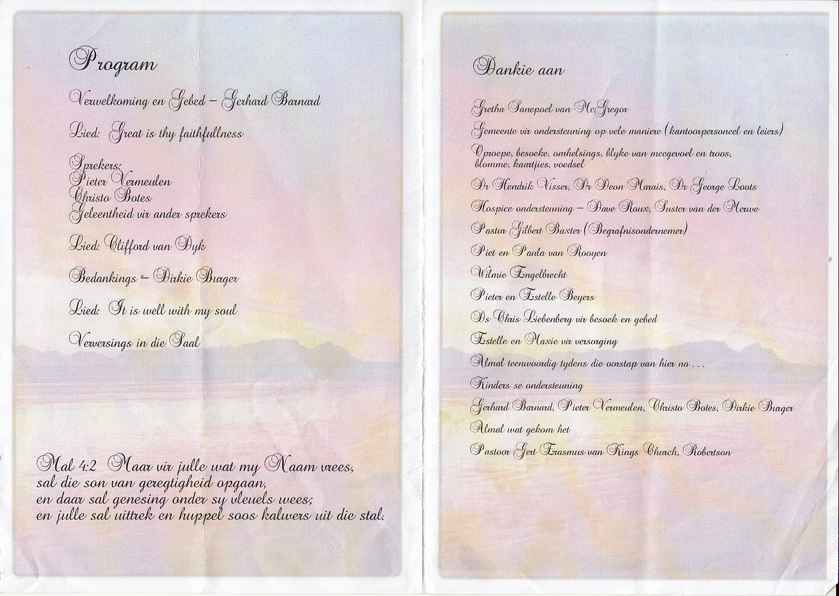 Program
Verwelkoming en Gebed – Gerhard Barnard
Lied: Great is thy faithfullness
Sprekers:
Pieter Vermeulen
Christo Botes
Geleentheid vir ander sprekers
Lied: Clifford van Dyk
Bedankings – Dirkie Burger
Lied: It is well with my soul
Verversings in die Saal
Mal 4:2 Maar vir julle wat my Naam vrees,
sal die son van geregtigheid opgaan,
en daar sal genesing onder sy vleuels wees;
en julle sal uittrek en huppel soos kalwers uit die stal.
Dankie aan
Gretha Swanepoel van McGregor
Gemeente vir ondersteuning op vele maniere (kantoorpersoneel en leiers)
Oproepe, besoeke, omhelsings, blyke van meegevoel en troos,
blomme, kaartjies, voedsel
Dr Hendrik Visser, Dr Deon Marais, Dr George Loots
Hospice ondersteuning – Dave Roux, Suster van der Merwe
Pastor Gilbert Baxter (Begrafnisondernemer)
Piet en Paula van Rooyen
Wilmie Engelbrecht
Pieter en Estelle Beyers
Ds Chris Liebenberg vir besoek en gebed
Estelle en Maxie vir versorging
Almal teenwoordig tydens die oorstap van hier na ...
Kinders se ondersteuning
Gerhard Barnard, Pieter Vermeulen, Christo Botes, Dirkie Burger
Almal wat gekom het
Pastoor Gert Erasmus van Kings Church, Robertson